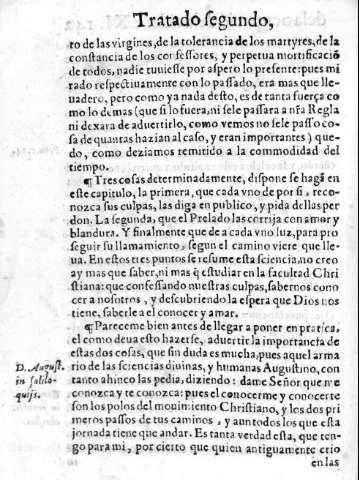 Tratado segundo,
to de las virgines, de la tolerancia de los martyres, de la
constancia de los confessores, y perpetua mortificació
de todos, nadie tuuiesse por aspero lo presente: pues mi
rado respectiuamente con lo passado, era mas que lle-
uadero, pero como ya nada desto, es de tanta fuerça co
mo lo demas (que si lo fuera, ni se le passara a nřa Regla
ni dexara de aduertirlo, como vemos no se le passo co-
sa de quantas hazian al caso, y eran importantes) que-
do, como deziamos remitido a la commodidad del
tiempo.
¶ Tres cosas determinadamente, dispone se hagã en
este capitulo, la primera, que cada vno de por si, reco-
nozca sus culpas, las diga en publico, y pida dellas per
don. La segunda, que el Prelado las corrija con amor y
blandura. Y finalmente que de a cada vno luz, para pro
seguir su llamamiento, segun el camino viere que lle-
ua. En estos tres puntos se resume esta sciencia, no creo
ay mas que saber, ni mas q̃ estudiar en la facultad Chri
stiana: que confessando nuestras culpas, sabernos cono
cer a nosotros, y descubriendo la espera que Dios nos
tiene, saberle a el conocer y amar.
¶ Pareceme bien antes de llegar a poner en pratica,
el como deua esto hazerse, aduertir la importancia de
estas dos cosas, que sin duda es mucha, pues aquel arma
rio de las sciencias diuinas, y humanas Augustino, con
tanto ahinco las pedia, diziendo: dame Señor que me
conozca y te conozca: pues el conocerme y conocerte
son los polos del mouimiento Christiano, y los dos pri
meros passos de tus caminos, y aun todos los que esta
jornada tiene que andar. Es tanta verdad esta, que ten-
go para mi, por cierto que quien antiguamente crio
en las
D. August.
in solilo-
quijs.